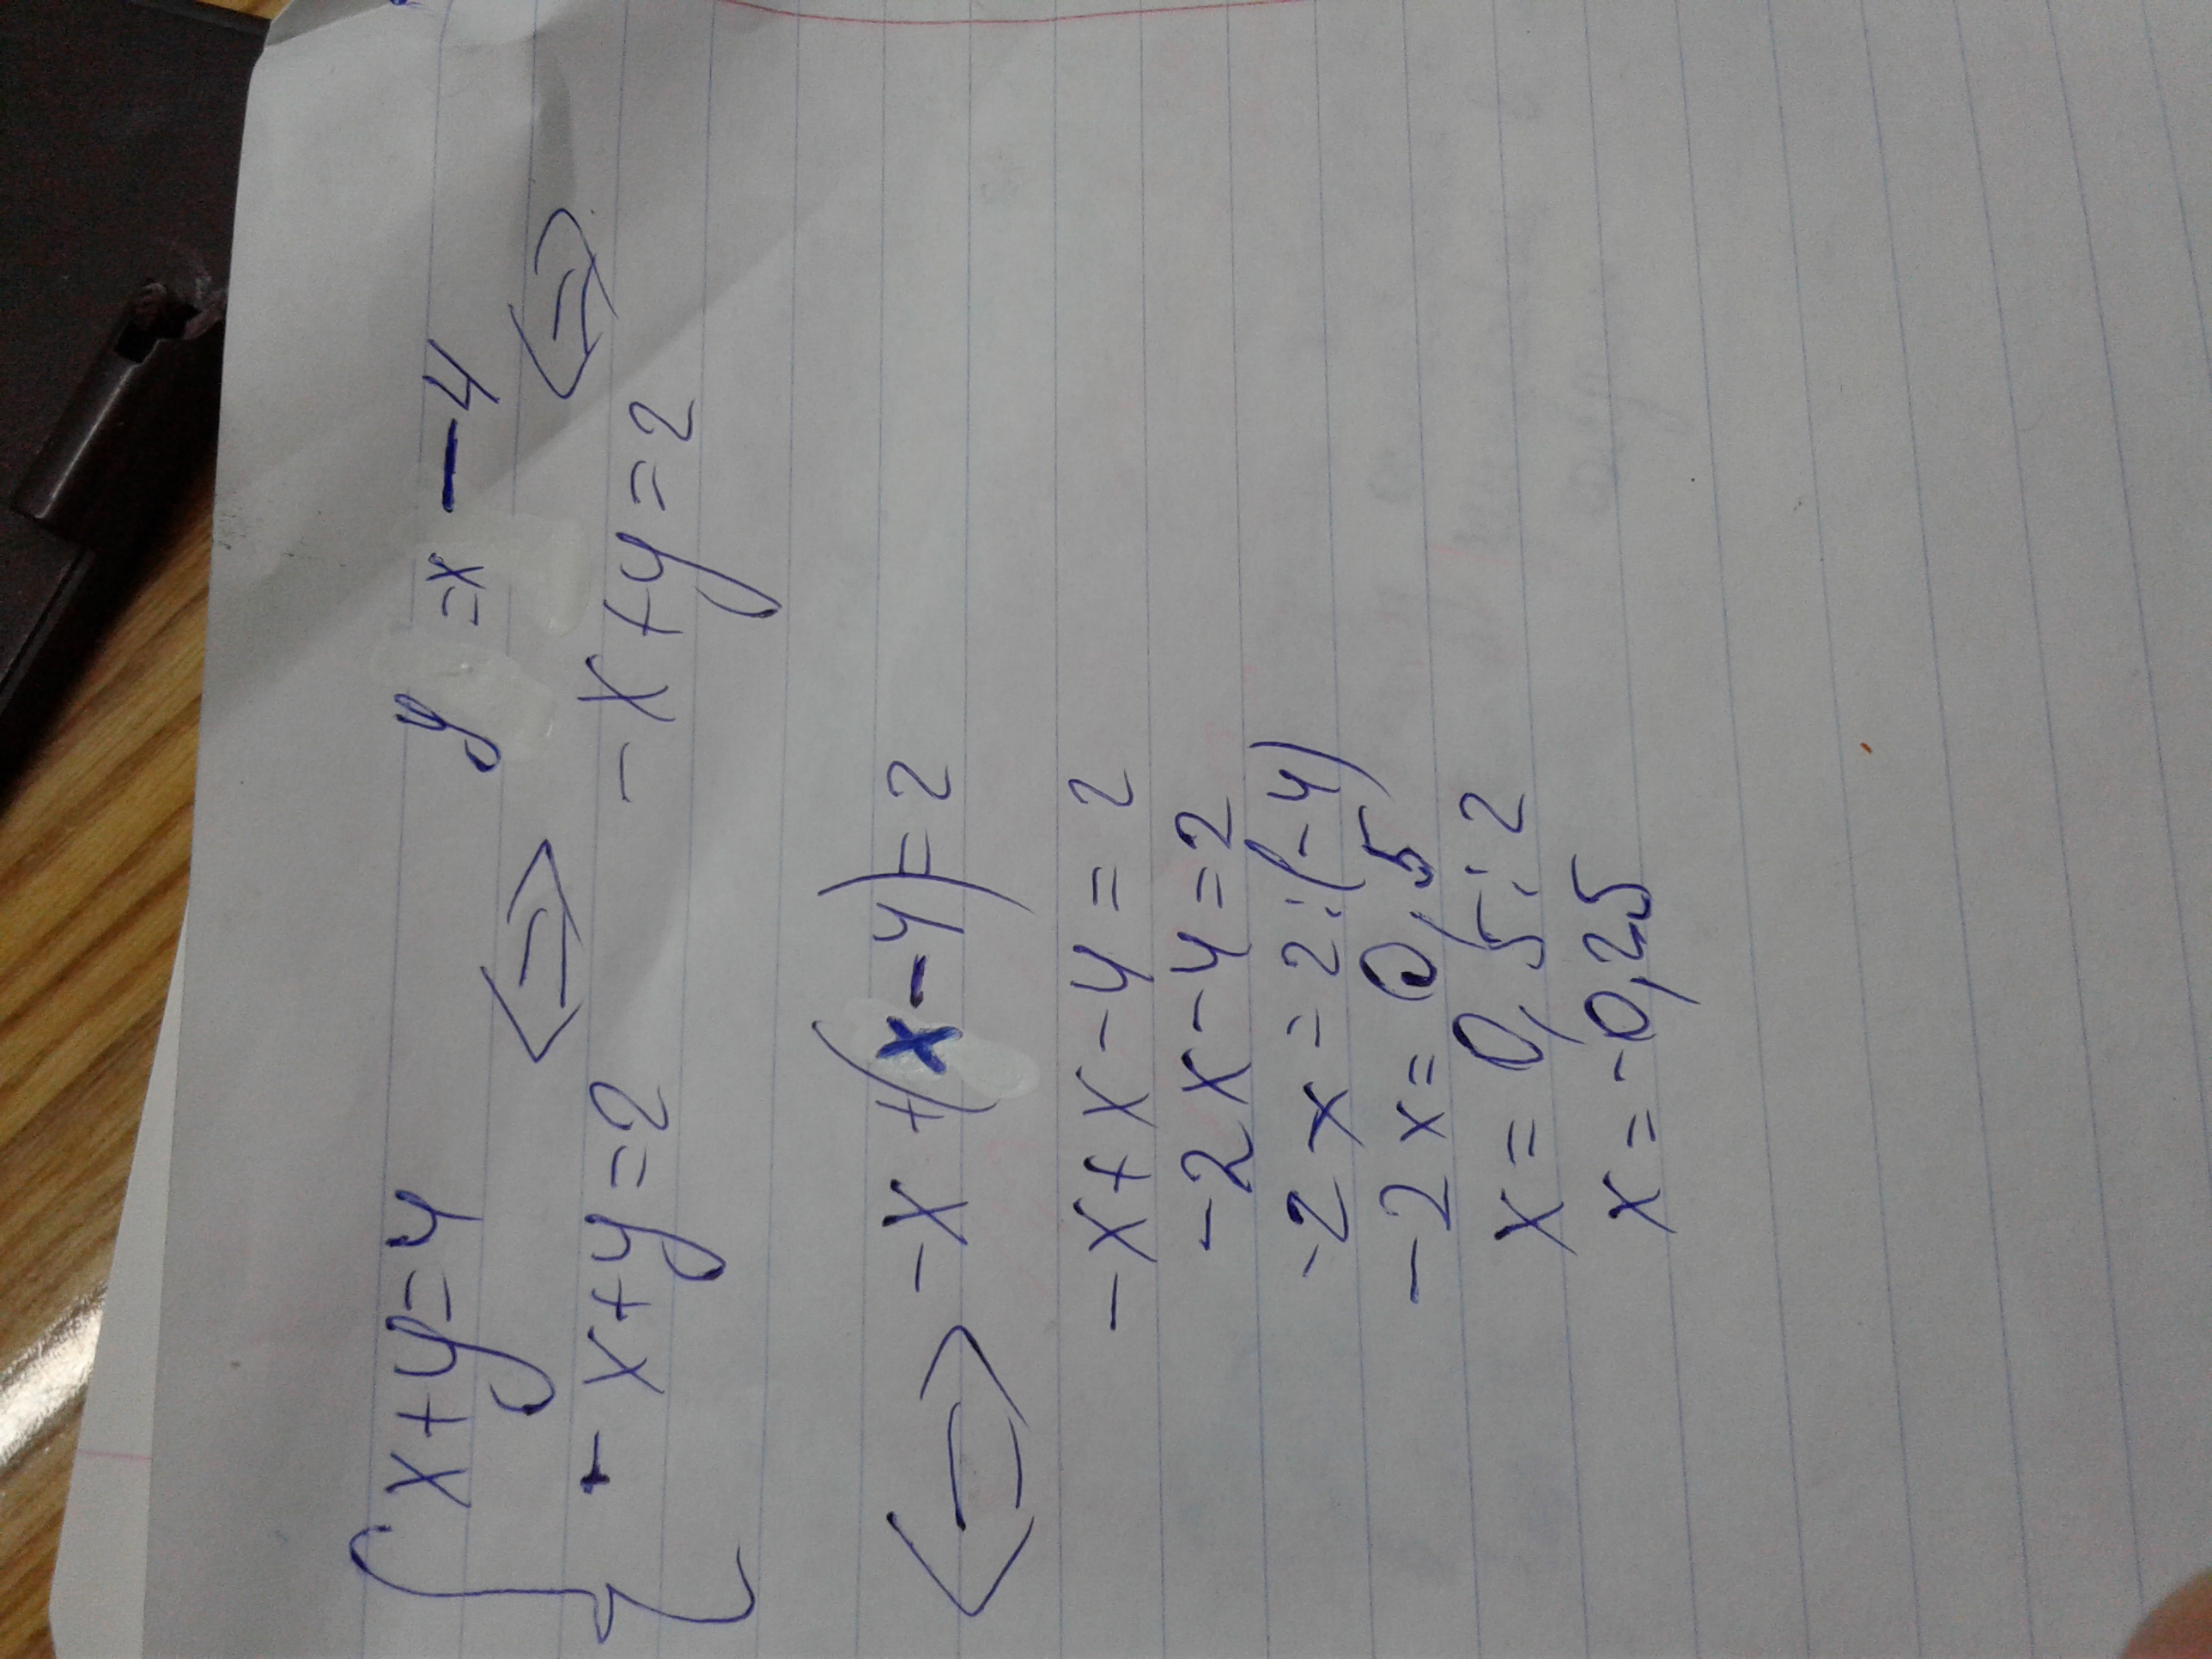 { x+y=4 ⇔ y =x -4 ⇔
- x+y=2 -x+y=2
⇔ -x+(x-4)=2
-x+x-4=2
-2x-4=2
-2x=2:(-4)
-2x=0,5
x=0,5:2
x=-0,25